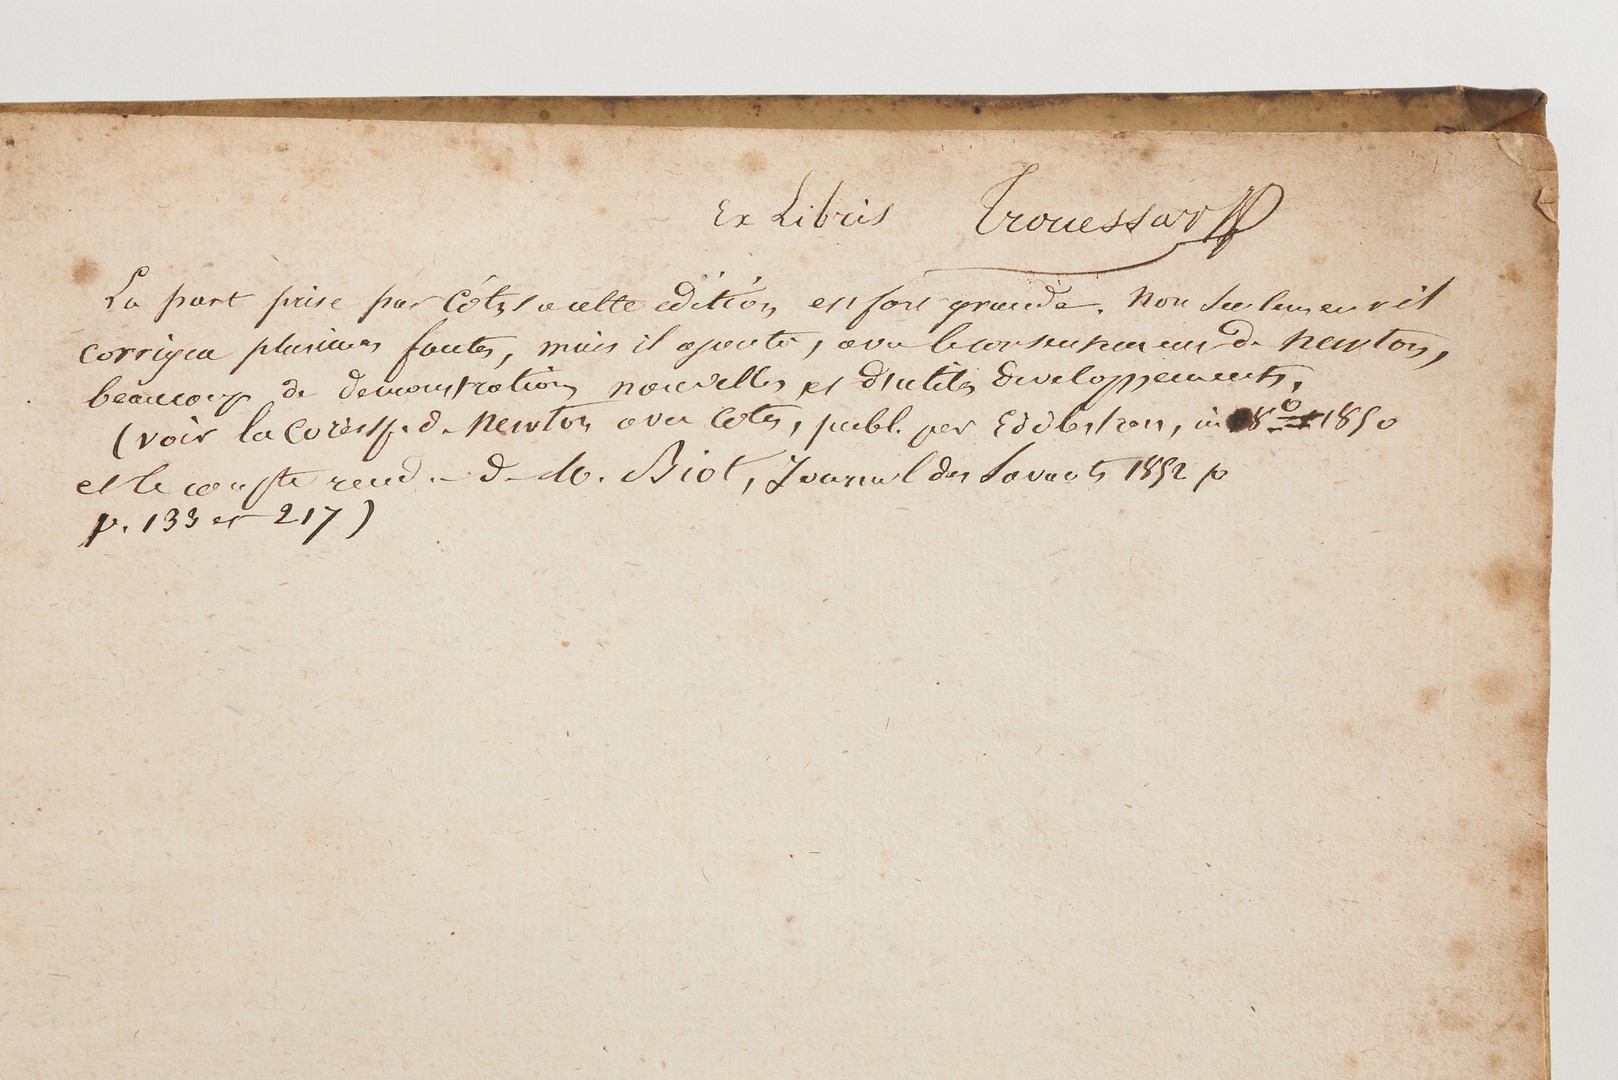 Ex Libris Trouessart
La part prise par Côtes a cette édition est fort grande. Non seulement il
corrigea plusieurs fautes, mais il ajouta, avec le consentement de Newton,
beaucoup de demonstrations nouvelles et d'utiles developpements.
(voir la corresp. de Newton avec Cotes, publ. par Edelston, in 8º 1850
et le compte rend. de M. Biot, Journal des Savants 1852 p
p. 133 et 217)